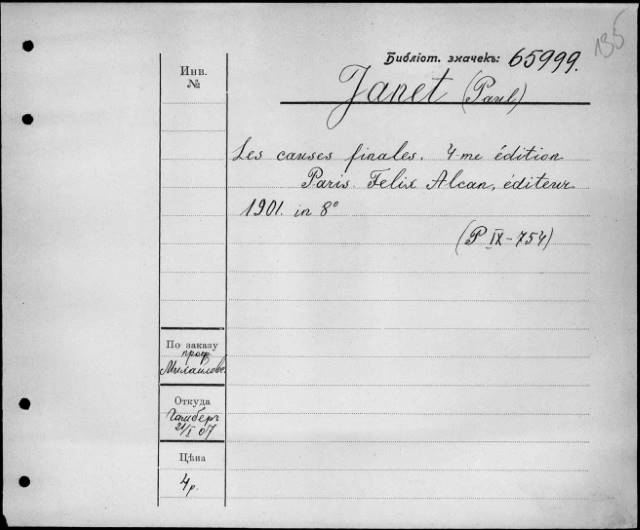 135
Библіот. значекъ: 65999.
Janet (Paul)
Инв.
№
Les causes finales. 4-me édition
Paris. Felix Alcan, éditeur
1901. in 8°
(P IX-754)
По заказу
проф.
Откуда
21/X 07
Цѣна
4 р.